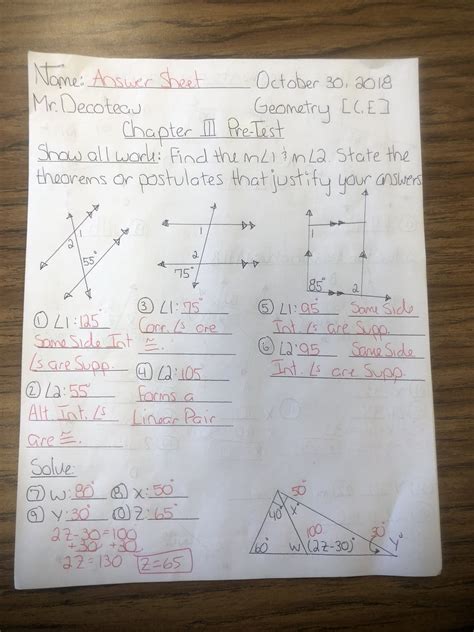 Name: Answer Sheet October 30, 2018
Mr. Decoteau Geometry [C,E]
Chapter III Pre-Test
Show all work: Find the m∠1 & m∠2. State the
theorems or postulates that justify your answers
1
2
55°
1
2
75°
1
85°
2
① ∠1: 125°
Same Side Int
∠s are Supp.
② ∠2: 55°
Alt. Int. ∠s
are ≅.
③ ∠1: 75°
Corr. ∠s are
≅.
④ ∠2: 105
Forms a
Linear Pair
⑤ ∠1: 95° Same Side
Int. ∠s are Supp.
⑥ ∠2: 95 Same Side
Int. ∠s are Supp.
Solve:
⑦ W: 80° ⑧ X: 50°
⑨ Y: 30° ⑩ Z: 65°
2Z-30=100
+30 +30
2Z=130 Z=65
50°
40° X°
100 30°
60° W (2Z-30)° Y°